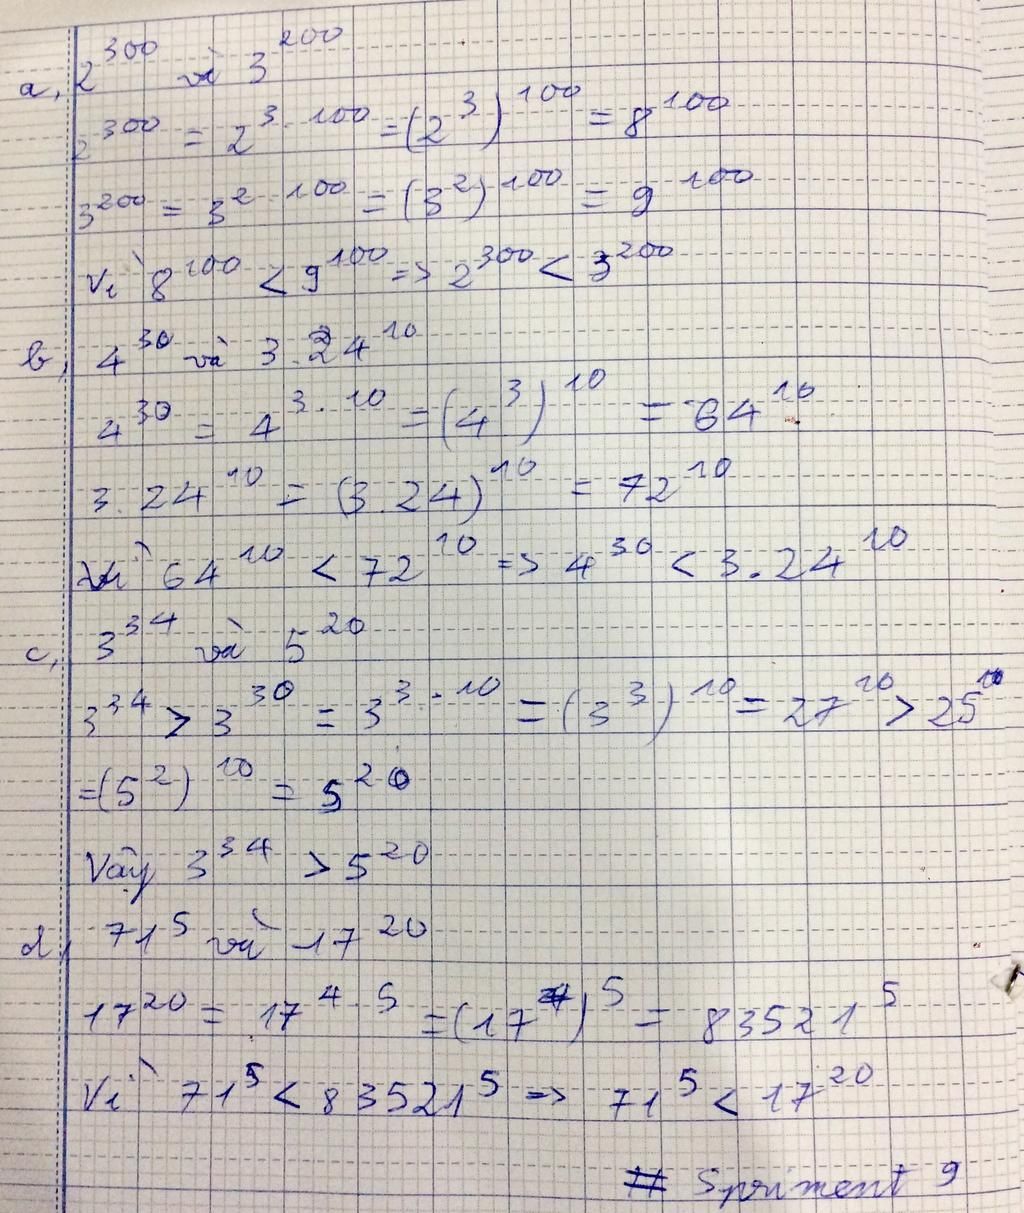 a, 2^300 và 3^200
2^300 = 2^3·100 = (2^3)^100 = 8^100
3^200 = 3^2·100 = (3^2)^100 = 9^100
Vì 8^100 < 9^100 => 2^300 < 3^200
b, 4^30 và 3.24^10
4^30 = 4^3·10 = (4^3)^10 = 64^10
3.24^10 = (3.24)^10 = 72^10
Vì 64^10 < 72^10 => 4^30 < 3.24^10
c, 3^34 và 5^20
3^34 > 3^30 = 3^3·10 = (3^3)^10 = 27^10 > 25^10
= (5^2)^10 = 5^20
Vậy 3^34 > 5^20
d, 71^5 và 17^20
17^20 = 17^4·5 = (17^4)^5 = 83521^5
Vì 71^5 < 83521^5 => 71^5 < 17^20
# Spriment 9